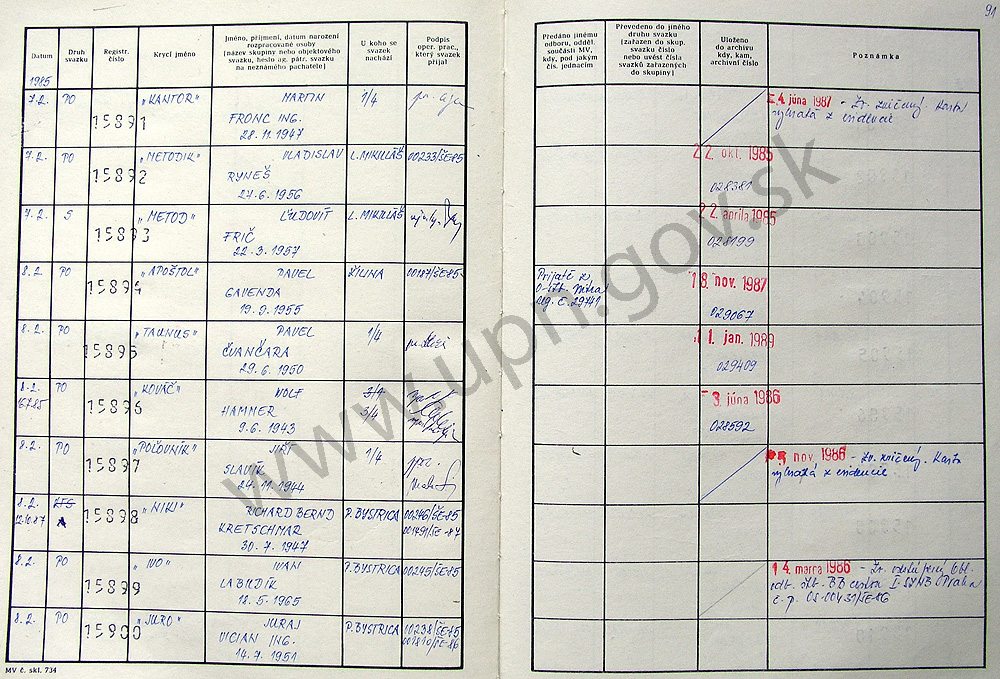 91
Datum
Druh svazku
Registr. číslo
Krycí jméno
Jméno, příjmení, datum narození rozpracované osoby (název skupiny nebo objektového svazku, heslo ag. pátr. svazku na neznámého pachatele)
U koho se svazek nachází
Podpis oper. prac., který svazek přijal
Předáno jinému odboru, odděl. součásti MV, kdy, pod jakým čís. jednacím
Převedeno do jiného druhu svazku (zařazen do skup. svazku číslo nebo uvést čísla svazků zařazených do skupiny)
Uloženo do archivu kdy, kam, archivní číslo
Poznámka
1985
7.2. PO 15891 "KANTOR" MARTIN 1/4
FRONC ING.
28.11.1947
4. júna 1987 - Zv. zničený. Karta
vyňatá z evidencie
7.2. PO 15892 "METODIK" VLADISLAV L. MIKULÁŠ 00233/ŠE-85
RYNEŠ
27.6.1956
22. okt. 1985
028381
7.2. S 15893 "METOD" ĽUDOVÍT L. MIKULÁŠ
FRIČ
22.3.1957
22. apríla 1985
028199
8.2. PO 15894 "APOŠTOL" PAVEL ŽILINA 00187/ŠE-85
GAVENDA
19.9.1955
Prijaté z
Nitra
reg. č. 29741
18. nov. 1987
029067
8.2. PO 15895 "TAUNUS" PAVEL 1/4
ČVANČARA
29.6.1950
11. jan. 1989
029409
8.2. PO 15896 "KOVÁČ" WOLF 3/4
HAMMER 3/4
9.6.1943
3. júna 1986
028592
8.2. PO 15897 "POĽOVNÍK" JIŘÍ 1/4
SLAVÍK
24.11.1944
nov. 1986 - Zv. zničený. Karta
vyňatá z evidencie
8.2. 15898 "NIKI" RICHARD BERND P. BYSTRICA 00246/ŠE-85
12.10.87 A KRETSCHMAR 001491/ŠE-87
30.7.1947
8.2. PO 15899 "IVO" IVAN P. BYSTRICA 00245/ŠE-85
LABUDÍK
18.5.1965
14. marca 1986 - Zv.
odb. ŠtB. BB cestou I. SNB Praha
č.p. OS-00431/ŠE-86
8.2. PO 15900 "JURO" JURAJ P. BYSTRICA 00238/ŠE-85
VICIAN ING. 001810/ŠE-86
14.7.1951
MV č. skl. 734
www.upn.gov.sk